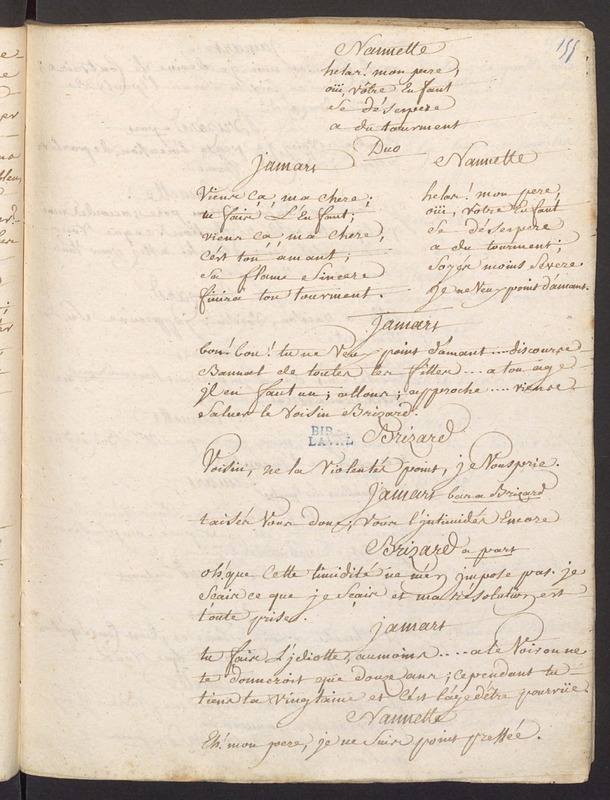 155
Nannette
helas! mon pere,
oüi, vôtre Enfant
se désespere
a du tourment
Duo
Jamars
Viens Ca, ma chere;
tu fais L'Enfant;
viens ça, ma chere,
c'est ton amant;
Sa flame Sincere
finira ton tourment.
Nannette
helas! mon pere,
oüi, Votre Enfant
se désespere
a du tourment;
Soyés moins Sévere
Je ne Veux point d'amant.
Jamars
bon! bon! tu ne Veux point d'amant ... discours
Bannal de toutes les filles ... a ton âge
il en faut un; allons; approche .... viens
Saluer le Voisin Brizard.
BIB.
LAVAL
Brizard
Voisin, ne la Violentés point, je Vous prie.
Jamars bas a Brizard
taisés Vous donc; Vous l'intimidés Encore
Brizard a part
oh! que Cette timidité ne m'en impose pas. je
Scais ce que je Scais et ma résolution est
toute prise.
Jamars
tu fais L'idiotte, aumoins .... a te Voir on ne
te donneroit que douze ans; cependant tu
tiens la Vingtaine et C'est l'âge d'être pourvüe
Nannette
Eh! mon pere, je ne Suis point pressée.